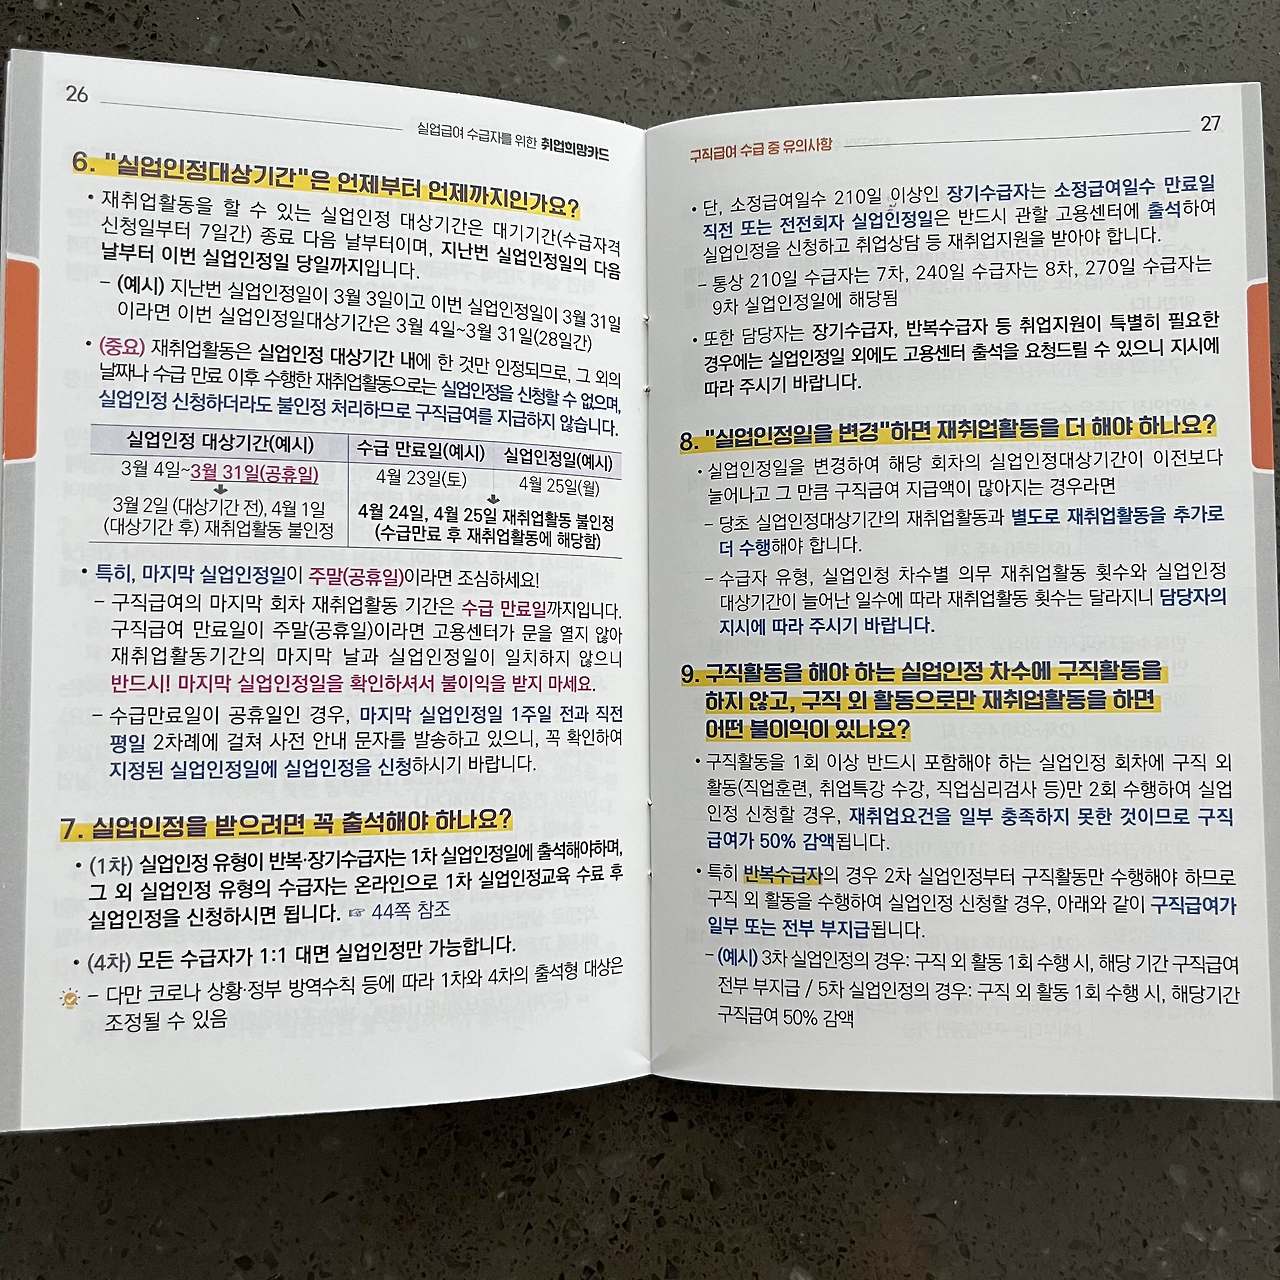 26
실업급여 수급자를 위한 취업희망카드
6. "실업인정대상기간"은 언제부터 언제까지인가요?
• 재취업활동을 할 수 있는 실업인정 대상기간은 대기기간(수급자격
신청일부터 7일간) 종료 다음 날부터이며, 지난번 실업인정일의 다음
날부터 이번 실업인정일 당일까지입니다.
- (예시) 지난번 실업인정일이 3월 3일이고 이번 실업인정일이 3월 31일
이라면 이번 실업인정일대상기간은 3월 4일~3월 31일(28일간)
• (중요) 재취업활동은 실업인정 대상기간 내에 한 것만 인정되므로, 그 외의
날짜나 수급 만료 이후 수행한 재취업활동으로는 실업인정을 신청할 수 없으며,
실업인정 신청하더라도 불인정 처리하므로 구직급여를 지급하지 않습니다.
실업인정 대상기간(예시) 수급 만료일(예시) 실업인정일(예시)
3월 4일~3월 31일(공휴일) 4월 23일(토) 4월 25일(월)
3월 2일 (대상기간 전), 4월 1일
(대상기간 후) 재취업활동 불인정
4월 24일, 4월 25일 재취업활동 불인정
(수급만료 후 재취업활동에 해당함)
• 특히, 마지막 실업인정일이 주말(공휴일)이라면 조심하세요!
- 구직급여의 마지막 회차 재취업활동 기간은 수급 만료일까지입니다.
구직급여 만료일이 주말(공휴일)이라면 고용센터가 문을 열지 않아
재취업활동기간의 마지막 날과 실업인정일이 일치하지 않으니
반드시! 마지막 실업인정일을 확인하셔서 불이익을 받지 마세요.
- 수급만료일이 공휴일인 경우, 마지막 실업인정일 1주일 전과 직전
평일 2차례에 걸쳐 사전 안내 문자를 발송하고 있으니, 꼭 확인하여
지정된 실업인정일에 실업인정을 신청하시기 바랍니다.
7. 실업인정을 받으려면 꼭 출석해야 하나요?
• (1차) 실업인정 유형이 반복·장기수급자는 1차 실업인정일에 출석해야하며,
그 외 실업인정 유형의 수급자는 온라인으로 1차 실업인정교육 수료 후
실업인정을 신청하시면 됩니다. ☞ 44쪽 참조
• (4차) 모든 수급자가 1:1 대면 실업인정만 가능합니다.
- 다만 코로나 상황·정부 방역수칙 등에 따라 1차와 4차의 출석형 대상은
조정될 수 있음
구직급여 수급 중 유의사항
27
• 단, 소정급여일수 210일 이상인 장기수급자는 소정급여일수 만료일
직전 또는 전전회차 실업인정일은 반드시 관할 고용센터에 출석하여
실업인정을 신청하고 취업상담 등 재취업지원을 받아야 합니다.
- 통상 210일 수급자는 7차, 240일 수급자는 8차, 270일 수급자는
9차 실업인정일에 해당됨
• 또한 담당자는 장기수급자, 반복수급자 등 취업지원이 특별히 필요한
경우에는 실업인정일 외에도 고용센터 출석을 요청드릴 수 있으니 지시에
따라 주시기 바랍니다.
8. "실업인정일을 변경"하면 재취업활동을 더 해야 하나요?
• 실업인정일을 변경하여 해당 회차의 실업인정대상기간이 이전보다
늘어나고 그 만큼 구직급여 지급액이 많아지는 경우라면
- 당초 실업인정대상기간의 재취업활동과 별도로 재취업활동을 추가로
더 수행해야 합니다.
- 수급자 유형, 실업인정 차수별 의무 재취업활동 횟수와 실업인정
대상기간이 늘어난 일수에 따라 재취업활동 횟수는 달라지니 담당자의
지시에 따라 주시기 바랍니다.
9. 구직활동을 해야 하는 실업인정 차수에 구직활동을
하지 않고, 구직 외 활동으로만 재취업활동을 하면
어떤 불이익이 있나요?
• 구직활동을 1회 이상 반드시 포함해야 하는 실업인정 회차에 구직 외
활동(직업훈련, 취업특강 수강, 직업심리검사 등)만 2회 수행하여 실업
인정 신청할 경우, 재취업요건을 일부 충족하지 못한 것이므로 구직
급여가 50% 감액됩니다.
• 특히 반복수급자의 경우 2차 실업인정부터 구직활동만 수행해야 하므로
구직 외 활동을 수행하여 실업인정 신청할 경우, 아래와 같이 구직급여가
일부 또는 전부 부지급됩니다.
- (예시) 3차 실업인정의 경우: 구직 외 활동 1회 수행 시, 해당 기간 구직급여
전부 부지급 / 5차 실업인정의 경우: 구직 외 활동 1회 수행 시, 해당기간
구직급여 50% 감액